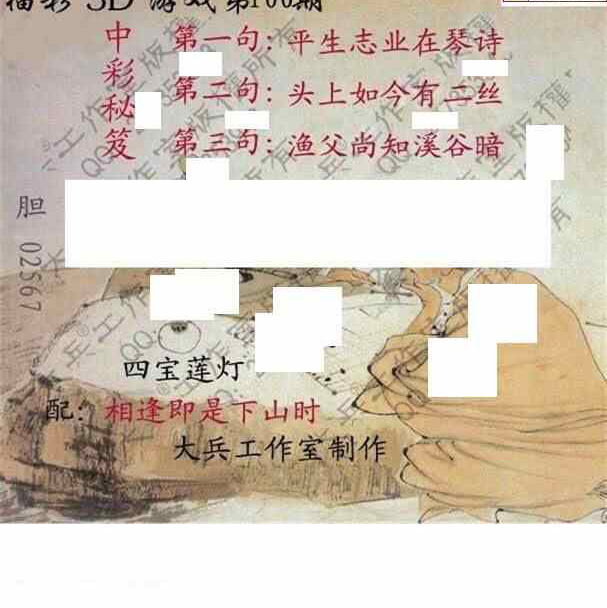 福彩 3D 游戏 第100期
中彩秘笈
第一句:平生志业在琴诗
第二句:头上如今有二丝
第三句:渔父尚知溪谷暗
胆 02567
四宝莲灯
配:相逢即是下山时
大兵工作室制作